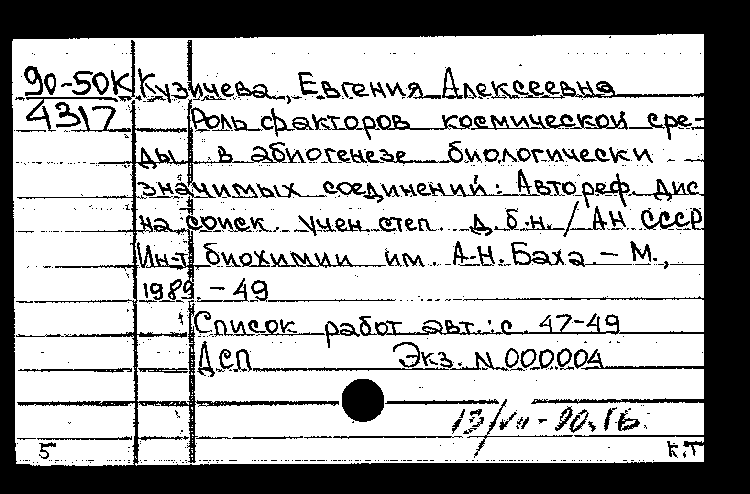 90-50К Кузичева, Евгения Алексеевна
4317 Роль факторов космической сре-
ды в абиогенезе биологически
значимых соединений: Автореф. дис
на соиск. учен. степ. д.б.н. / АН СССР
Ин-т биохимии им. А.Н. Баха. – М.,
1989. – 49
Список работ авт.: с. 47-49
ДСП Экз. N 000004
13/VII - 90.
5 К.Т